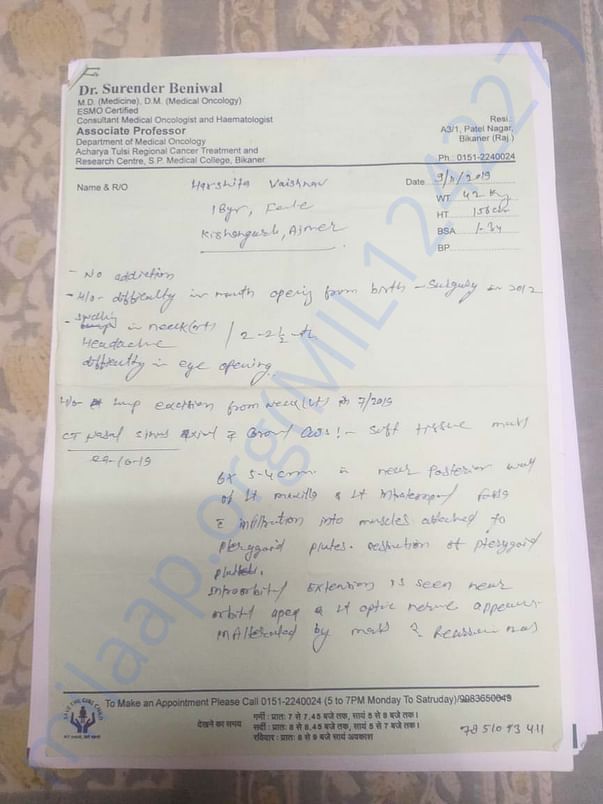 Dr. Surender Beniwal
M.D. (Medicine), D.M. (Medical Oncology)
ESMO Certified
Consultant Medical Oncologist and Haematologist
Associate Professor
Department of Medical Oncology
Acharya Tulsi Regional Cancer Treatment and
Research Centre, S.P. Medical College, Bikaner
Resi.:
A3/1, Patel Nagar,
Bikaner (Raj.)
Ph.: 0151-2240024
Name & R/O Harshita Vaishnav
18yr,
Kishangarh, Ajmer
Date 9/11/2019
WT. 42 Kg
HT 156 cm
BSA
BP
- No addiction
- H/o - difficulty in mouth opening from birth - Surgery in 2012
- swelling in neck (Lt)
Headache
difficulty in eye opening
H/o excision from neck (Lt) in 7/2019
CT Nasal sinus Cuts :- soft tissue mass
6x5.4cm in near posterior wall
of Lt maxilla & Lt fossa
infiltration into muscles attached to
pterygoid plates. destruction of pterygoid
plates.
intraorbital extension is seen near
orbital apex & Lt optic nerve appears
by mass
To Make an Appointment Please Call 0151-2240024 (5 to 7PM Monday To Satruday)/9983650049
SAVE THE GIRL CHILD
देखने का समय
गर्मी : प्रातः 7 से 7.45 बजे तक, सायं 5 से 8 बजे तक।
सर्दी : प्रातः 8 से 8.45 बजे तक, सायं 5 से 7 बजे तक।
रविवार : प्रातः 8 से 9 बजे सायं अवकाश
milaap.org(MIL124227)